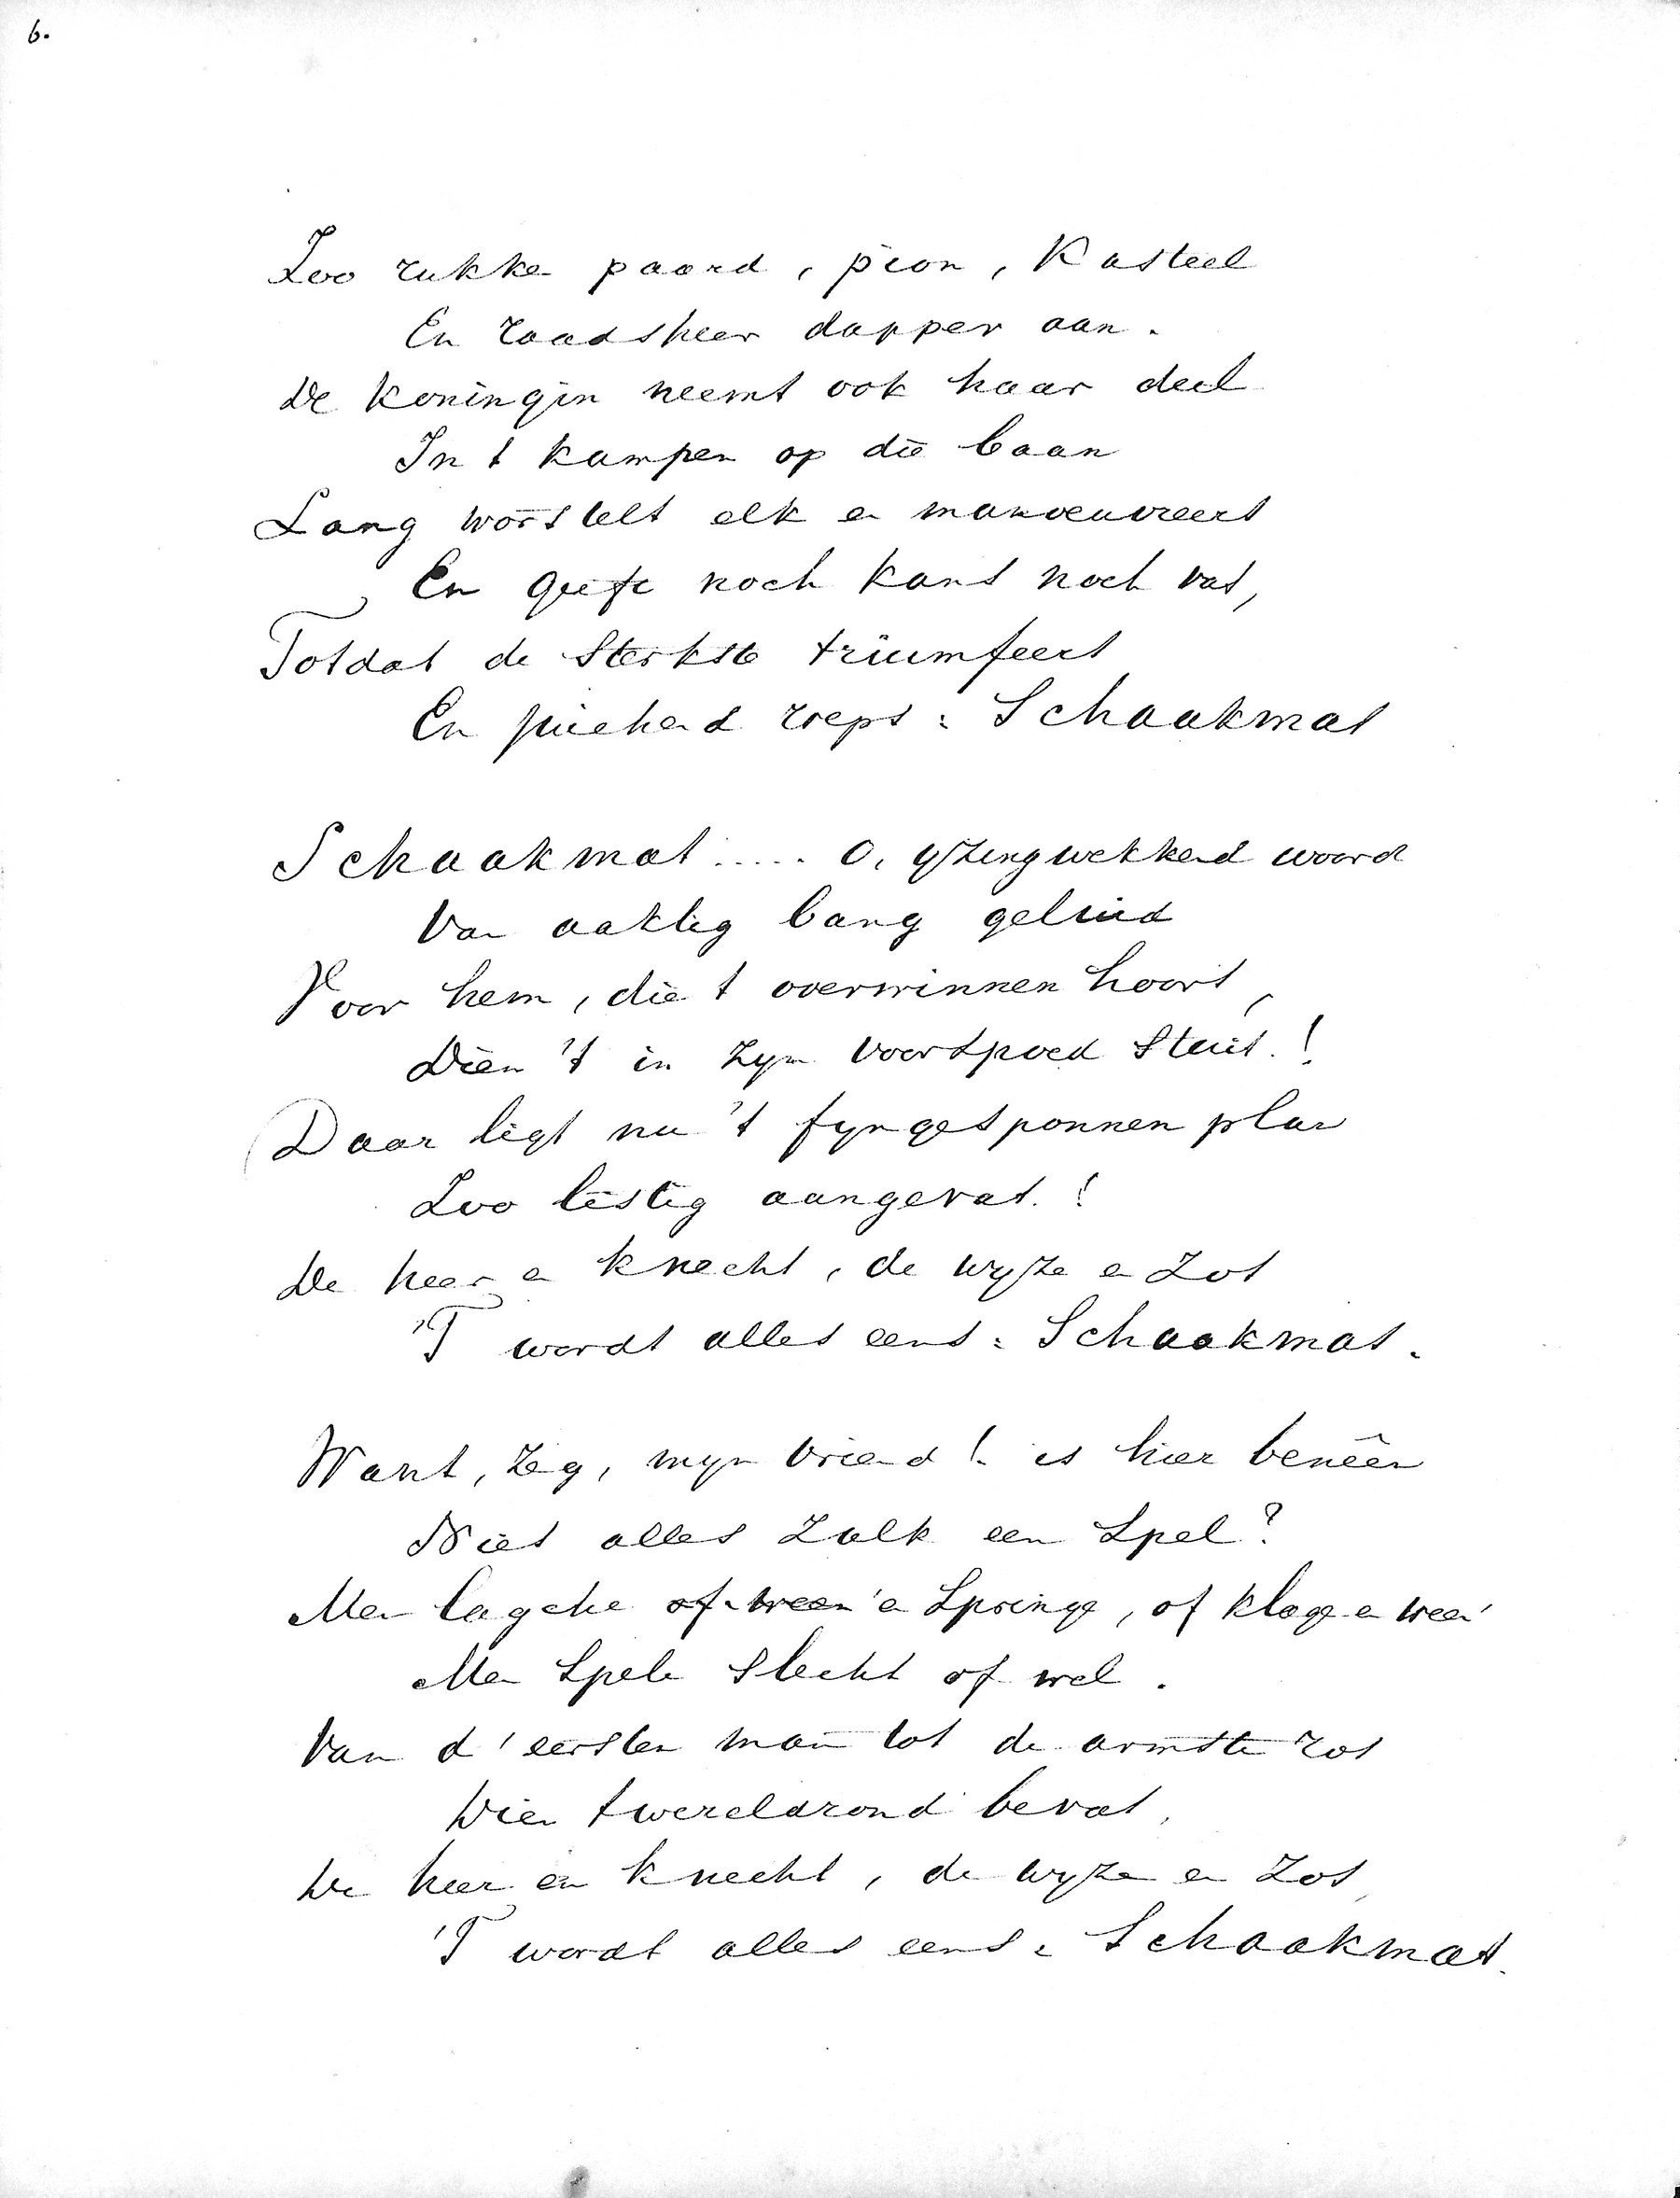 6.
Zoo rukke paard, pion, Kasteel
En raadsheer dapper aan.
De Koningin neemt ook haar deel
In t kampen op die baan
Lang worstelt elk en manoeuvreert
En geeft noch kans noch vat,
Totdat de sterkste triumfeert
En juichend roept: Schaakmat
Schaakmat ..... O, yzingwekkend woord
Van aaklig bang geluid
Voor hem, die t overwinnen hoort,
Dien 't in zyn voorspoed stuit.!
Daar ligt nu 't fyngesponnen plan
Zoo listig aangevat.!
De heer en knecht, de wyze en zot
'T wordt alles eens: Schaakmat.
Want, zeg, myn vriend! is hier beneên
Niet alles zulk een spel?
Men lagche of ween' en springe, of klage en ween'
Men spele slecht of wel.
Van d'eersten man tot de armste rot
Dien t wereldrond bevat,
De heer en knecht, de wyze en zot,
'T wordt alles eens: Schaakmat.